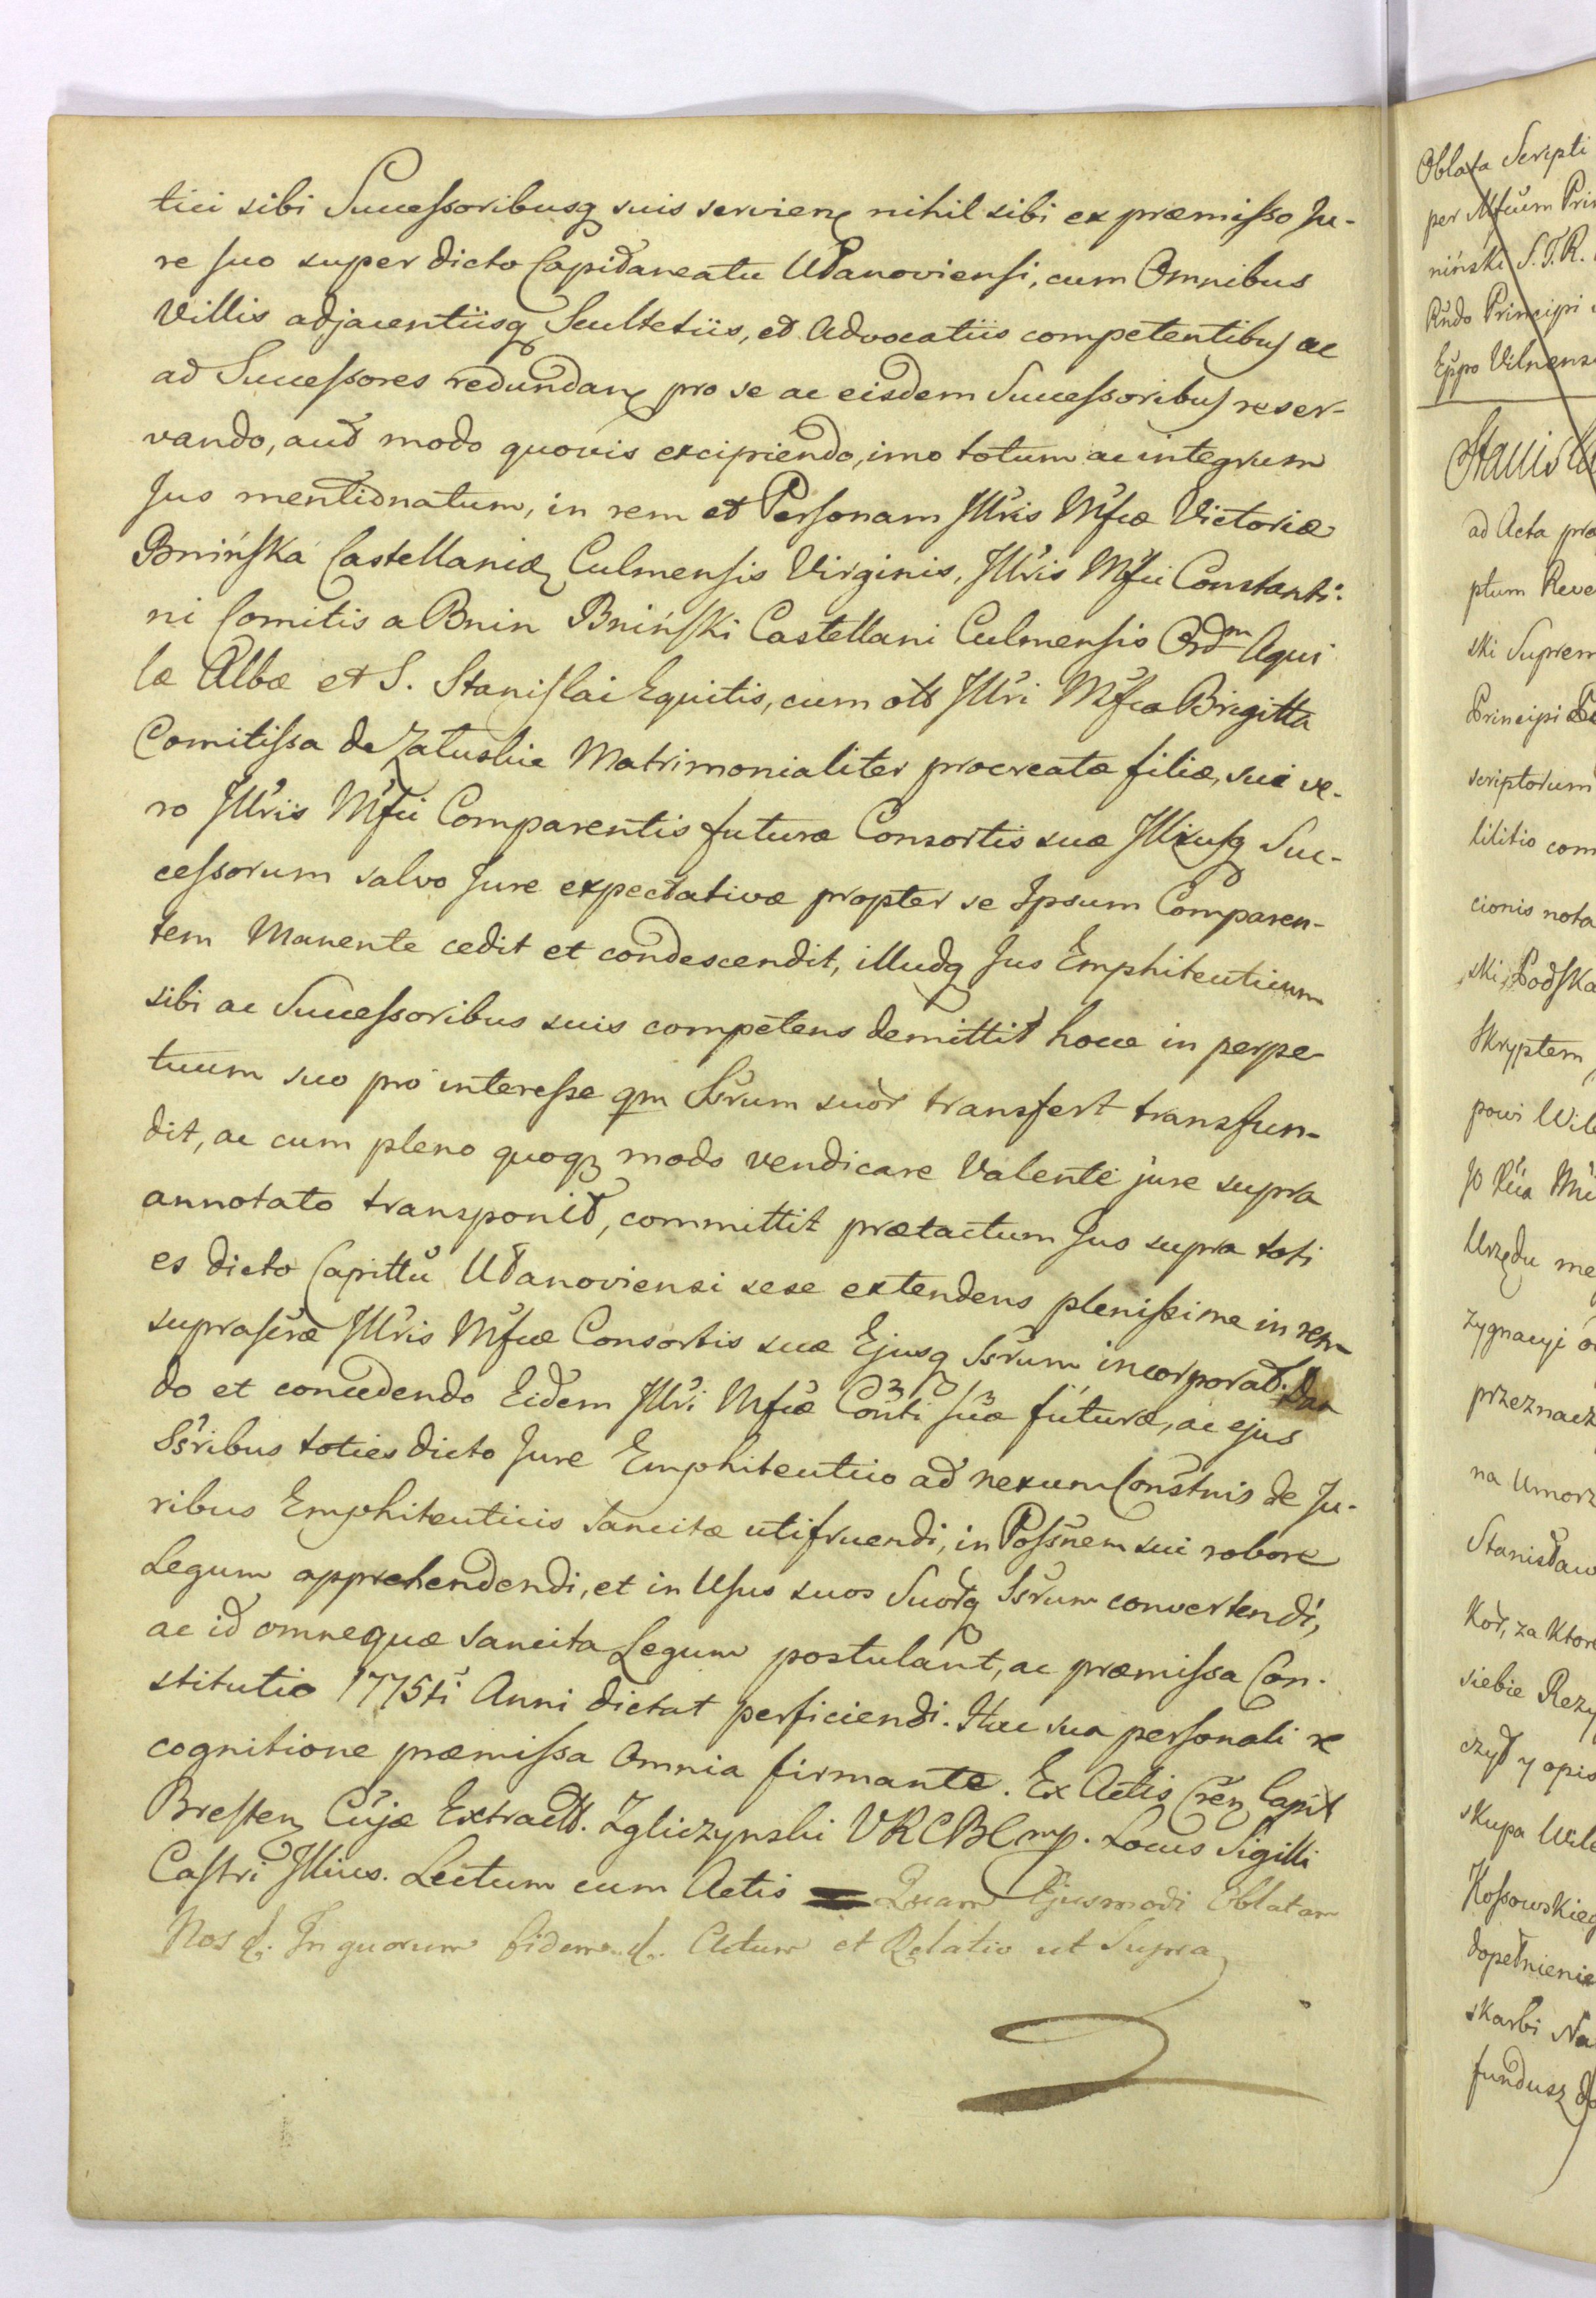 tici sibi Successoribusq suis servien nihil sibi ex præmisso Ju-
re suo super dicto Capitaneatu Utanoviensi, cum Omnibus
Villis adjacentiisq Scultetiis, et Advocatiis competentibus ac
ad Successores redundan pro se ac eisdem Successoribus reser-
vando, aut modo quovis excipiendo, imo totum ac integrum
Jus mentionatum, in rem et Personam Jllris Mfcæ Victoriæ
Bnińska Castellanidæ Culmensis Virginis, Jllris Mfci Constanti-
ni Comitis a Bnin Bniński Castellani Culmensis Ordm Aqui
læ Albæ et S. Stanislai Equitis, cum olt Jllri Mfca Brigitta
Comitissa de Załuskie Matrimonialiter procreatæ filiæ, sui ve-
ro Jllris Mfci Comparentis futuræ Consortis suæ Jlliusq Suc-
cessorum salvo Jure expectativæ propter se Ipsum Comparen-
tem Manente cedit et condescendit, illudq Jus Emphiteuticum
sibi ac Successoribus suis competens demittit hocce in perpe-
tuum suo pro interesse qm Ssrum suor transfert transfun-
dit, ac cum pleno quoq modo vendicare Valente jure supra
annotato transponit, committit prætactum Jus supra toti
es dicto Capittu Utanoviensi sese extendens plenissime in rem
suprascræ Jllris Mfcæ Consortis suæ Ejusq Ssrum incorporat. Dan
do et concedendo Eidem Jllri Mfcæ Conti suæ futuræ, ac ejus
Ssribus toties dicto Jure Emphiteutico ad nexum Constnis de Ju-
ribus Emphiteuticis sancitæ utifruendi, in Possnem sui robore
Legum apprehendendi, et in Usus suos Suorq Ssrum convertendi,
ac id omne quæ sancita Legum postulant, ac præmissa Con-
stitutio 1775ti Anni dictat perficiendi. Hac sua personali re
cognitione præmissa Omnia firmante. Ex Actis Cren Capit
Bresten Cujæ Extract. Zgliczynski VRCBC mp. Locus Sigilli
Castri Jllius. Lectum cum Actis = Quam Ejusmodi Oblatam
Nos &. In quorum fidem &. Actum et Relatio ut Supra
Oblata Scripti
per Mfcum Prin
niński S.T.R.
Rndo Principi
Eppo Vilnens
Stanisla
ad Acta pro
ptum Reve
ski Suprem
Principi
scriptorum
litilio com
cionis nota
ski Podska
Skryptem
powi Wile
Urzędu me
zygnacyi
przeznacz
na Umorz
Stanisław
Kor, za Ktore
siebie Rezy
czył y opis
skupa Wile
Kossowskieg
dopełnienie
skarbi Na
fundusz do